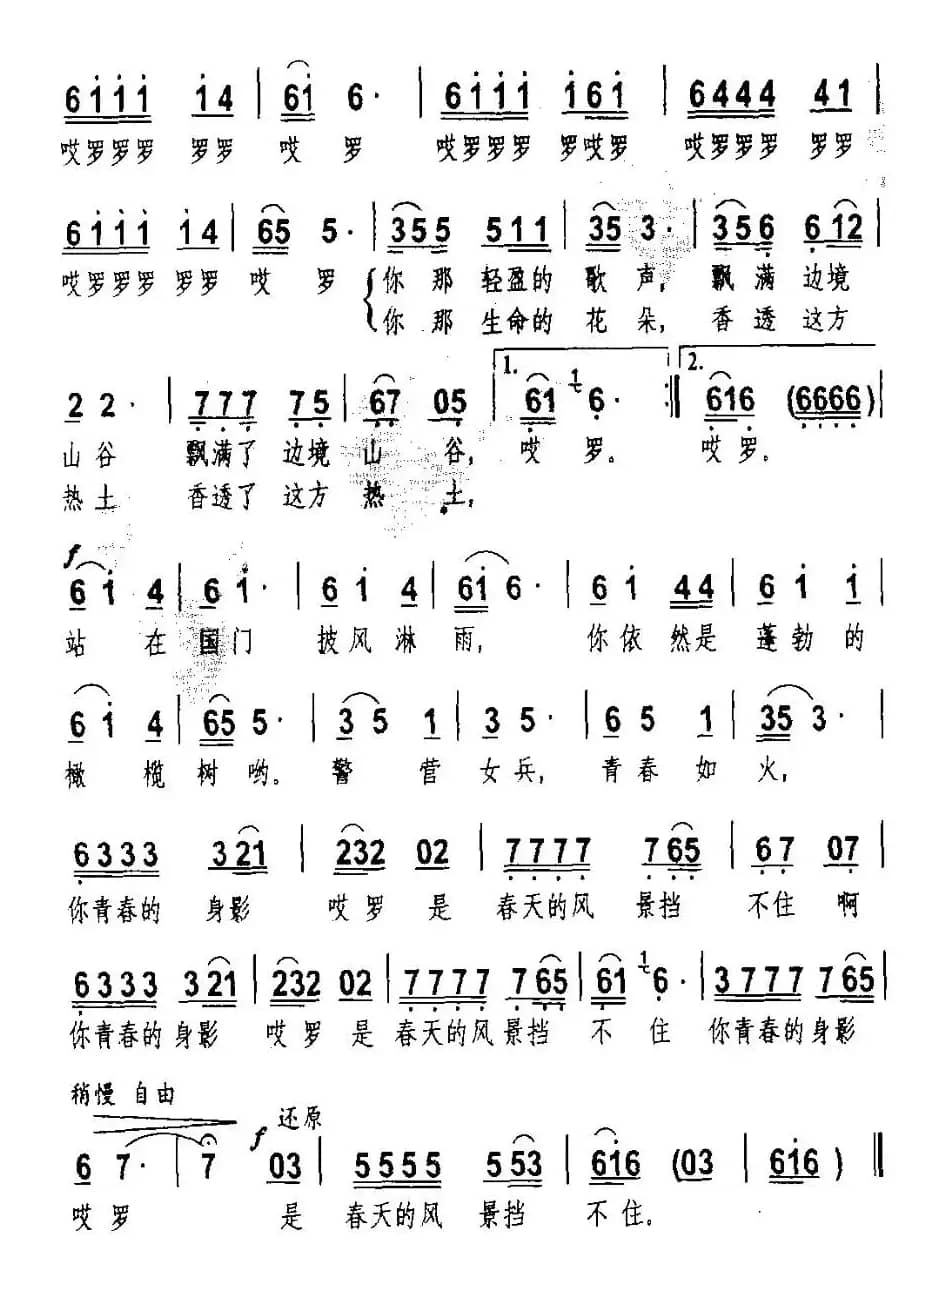 6111 14 | 61 6· | 6111 161 | 6444 41 |
哎罗罗罗 罗罗 哎 罗 哎罗罗罗 罗哎罗 哎罗罗罗 罗罗
6111 14 | 65 5· | 355 511 | 35 3· | 356 612 |
哎罗罗罗 罗罗 哎 罗 你 那 轻盈的 歌 声, 飘 满 边境
你 那 生命的 花 朵, 香 透 这方
1. 2.
2 2· | 777 75 | 67 05 | 61 1 6· :‖ 616 (6666 |
山谷 飘满了 边境 山 谷, 哎 罗。 哎 罗。
热土 香透了 这方 热 土,
f
6 1 4 | 6 1· | 6 1 4 | 61 6· | 6 1 44 | 6 1 1 |
站 在 国门 披风淋 雨, 你依然是 蓬勃的
6 1 4 | 65 5· | 3 5 1 | 3 5· | 6 5 1 | 35 3· |
橄 榄 树 哟。 警 营 女兵, 青春 如 火,
6333 321 | 232 02 | 7777 765 | 67 07 |
你青春的 身影 哎罗 是 春天的风 景挡 不住 啊
6333 321 | 232 02 | 7777 765 | 61 1 6· | 3777 765 |
你青春的 身影 哎 罗 是 春天的风 景挡 不 住 你青春的 身影
稍慢 自由
f 还原
6 7· | 7 03 | 5555 553 | 616 (03 | 616 ) ‖
哎 罗 是 春天的风 景挡 不 住。